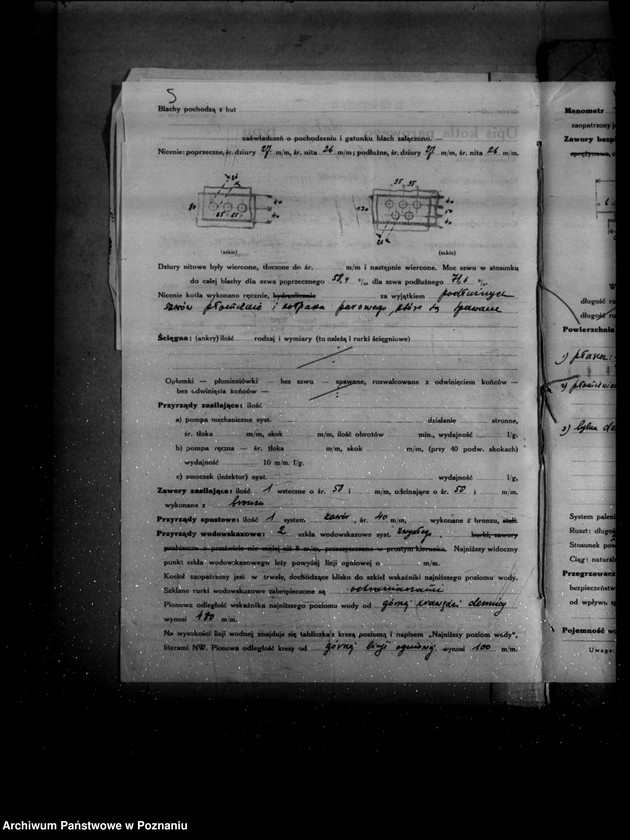 5
Blachy pochodzą z hut
zaświadczeń o pochodzeniu i gatunku blach załączono. —
Nicenie: poprzeczne, śr. dziury 27 m/m, śr. nita 26 m/m; podłużne, śr. dziury 27 m/m, śr. nita 26 m/m.
26
35 35
80
40
40
65 65
130
40
50
40
26
(szkic) (szkic)
Dziury nitowe były wiercone, tłoczone do śr. m/m i następnie wiercone. Moc szwu w stosunku
do całej blachy dla szwa poprzecznego 58,4 % dla szwa podłużnego 71,6 %
Nicenie kotła wykonano ręcznie, hydraulicznie za wyjątkiem podłużnych
szwów płomienic i kołpaka parowego, które są spawane
Ścięgna: (ankry) ilość rodzaj i wymiary (tu należą i rurki ścięgniowe)
Opłomki — płomieniówki — bez szwu — spawane, rozwalcowane z odwinięciem końców —
bez odwinięcia końców —
Przyrządy zasilające: ilość
a) pompa mechaniczna syst. działanie stronne,
śr. tłoka m/m, skok m/m, ilość obrotów min., wydajność l/g.
b) pompa ręczna — śr. tłoka m/m, skok m/m, (przy 40 podw. skokach)
wydajność 10 m/m. l/g.
c) smoczek (inżektor) syst. wydajność l/g,
Zawory zasilające: ilość 1 wsteczne o śr. 50 i m/m, odcinające o śr. 50 i m/m.
wykonane z bronzu
Przyrządy spustowe: ilość 1 system. zawór, śr. 40 m/m, wykonane z bronzu, stali.
Przyrządy wodowskazowe: 2 szkła wodowskazowe syst. zwykłego, kurki, zawory
Najniższy widoczny
punkt szkła wodowskazowego leży powyżej linji ogniowej o m/m.
Kocioł zaopatrzony jest w trwałe, dochodzące blisko do szkieł wskaźniki najniższego poziomu wody.
Szklane rurki wodowskazowe zabezpieczone są ochraniaczami
Pionowa odległość wskaźnika najniższego poziomu wody od górnej krawędzi dennicy
wynosi 180 m/m.
Na wysokości linji wodnej znajduje się tabliczka z kresą poziomą i napisem „Najniższy poziom wody",
literami NW. Pionowa odległość kresy od górnej linji ogniowej wynosi 100 m/m.
Manometr
zaopatrzony
Zawory bezp
sprężynowe,
6
W
długość
długość
Powierzchnia
1) płasz
2) płomien
3)
System palen
Ruszt: długoś
Stosunek pow
Ciąg: natural
Przegrzewacz
bezpieczeństw
od wpływ
Pojemność wo
Uwaga:
Archiwum Państwowe w Poznaniu